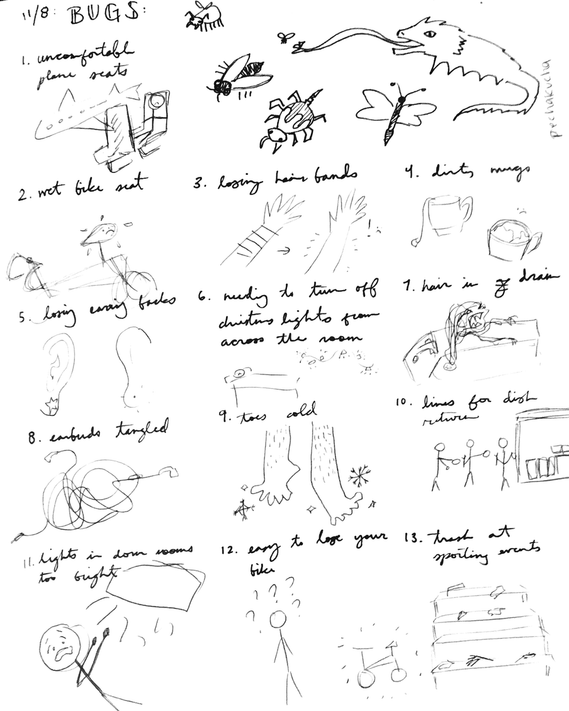 11/8: BUGS:
1. uncomfortable
plane seats
2. wet bike seat
3. losing hair bands
4. dirty mugs
5. losing earring backs
6. needing to turn off
christmas lights from
across the room
7. hair in drain
8. earbuds tangled
9. toes cold
10. lines for dish
return
11. lights in dorm rooms
too bright
12. easy to lose your
bike
13. trash at
sporting events
? ? ?
? ?